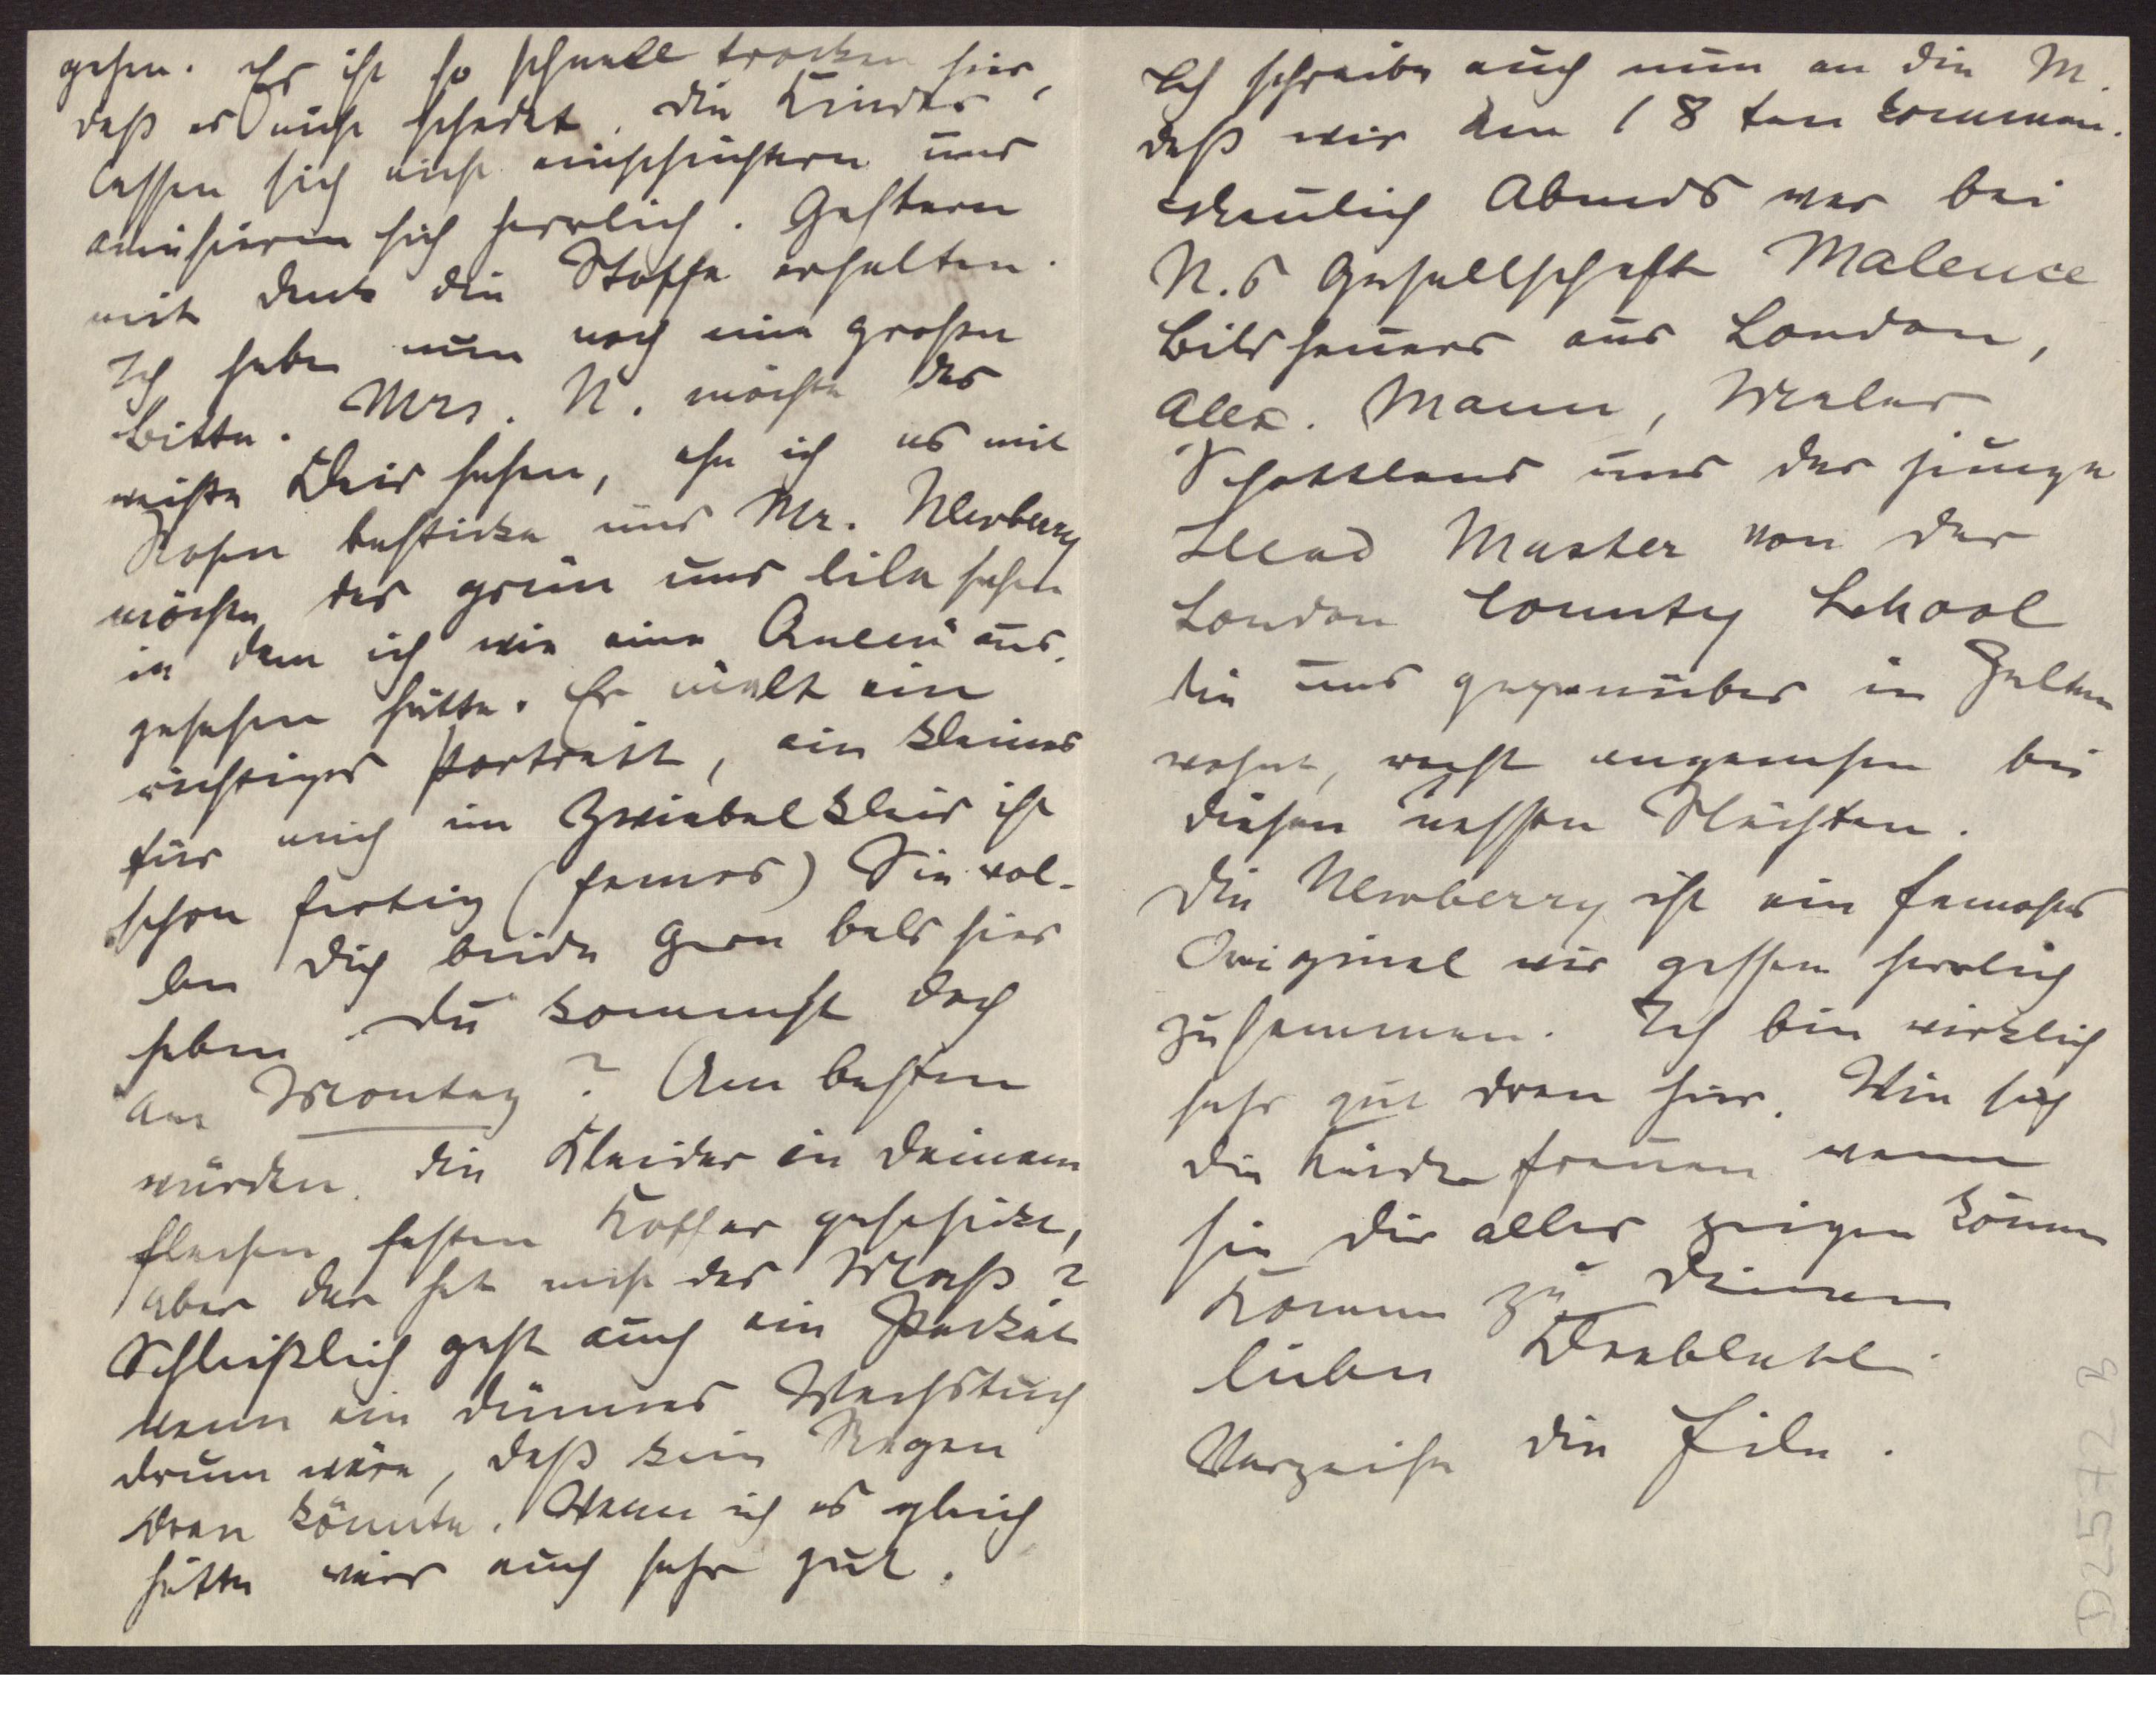 gehen. Es ist so schnell trocken hier,
daß es nicht schadet. die Kinder
lassen sich nicht einschüchtern und
amüsieren sich herrlich. Gestern
mit Dank die Stoffe erhalten.
Ich habe nun noch eine große
Bitte. Mrs. N. möchte das
weiße Kleid sehen, ehe ich es mit
Rosen besticke und Mr. Newberry
möchte das grün und lila sehen
in dem ich wie eine Queen aus.
gesehen hätte. Er malt ein
richtiges Portrait, ein kleines
für mich im Zwiebelkleid ist
schon fertig (famos) Sie wol-
len Dich beide gern bald hier
haben. Du kommst doch
am Montag? Am besten
würden die Kleider in Deinem
flachen festen Koffer geschickt,
aber der hat nicht das Maß?
Schließlich geht auch ein Packet
wenn ein dünnes Wachstuch
drum wäre, daß kein Regen
dran könnte. Wenn ich es gleich
hätte wärs auch sehr gut.
Ich schreibe auch nun an die M.
daß wir am 18 ten kommen.
Neulich Abends war bei
N.s Gesellschaft
Bildhauers aus London,
Alex. Mann, Maler
Schottland und der junge
Head Master von der
London County School
die uns gegenüber in Zelten
wohnt, recht angenehm bei
diesen nassen Nächten.
Die Newberry ist ein famoses
Original wir passen herrlich
zusammen. Ich bin wirklich
sehr gut dran hier. Wie sich
die Kinder freuen wenn
sie Dir alles zeigen können
Komm zu Deinem
lieben
Verzeihe die Eile.
D2572 B